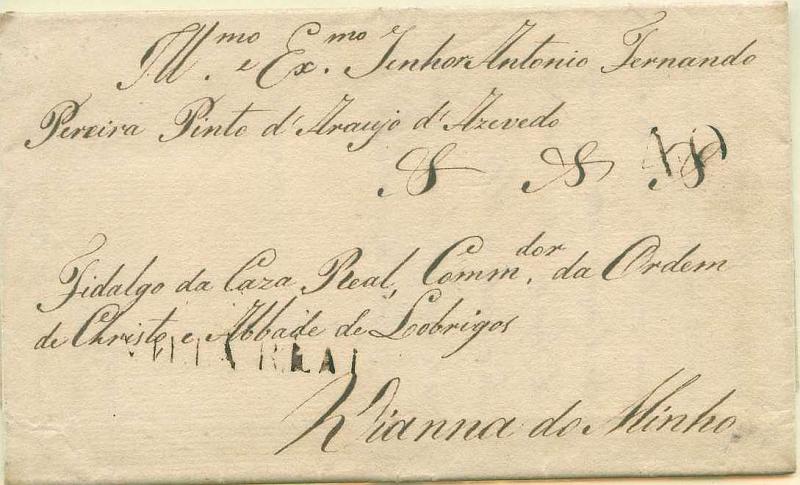 Ill.mo e Ex.mo Senhor Antonio Fernando
Pereira Pinto d'Araujo d'Azevedo
S S S 40
Fidalgo da Caza Real, Comm.dor da Ordem
de Christo e Abbade de Lobrigos
VILLA REAL
Vianna do Minho